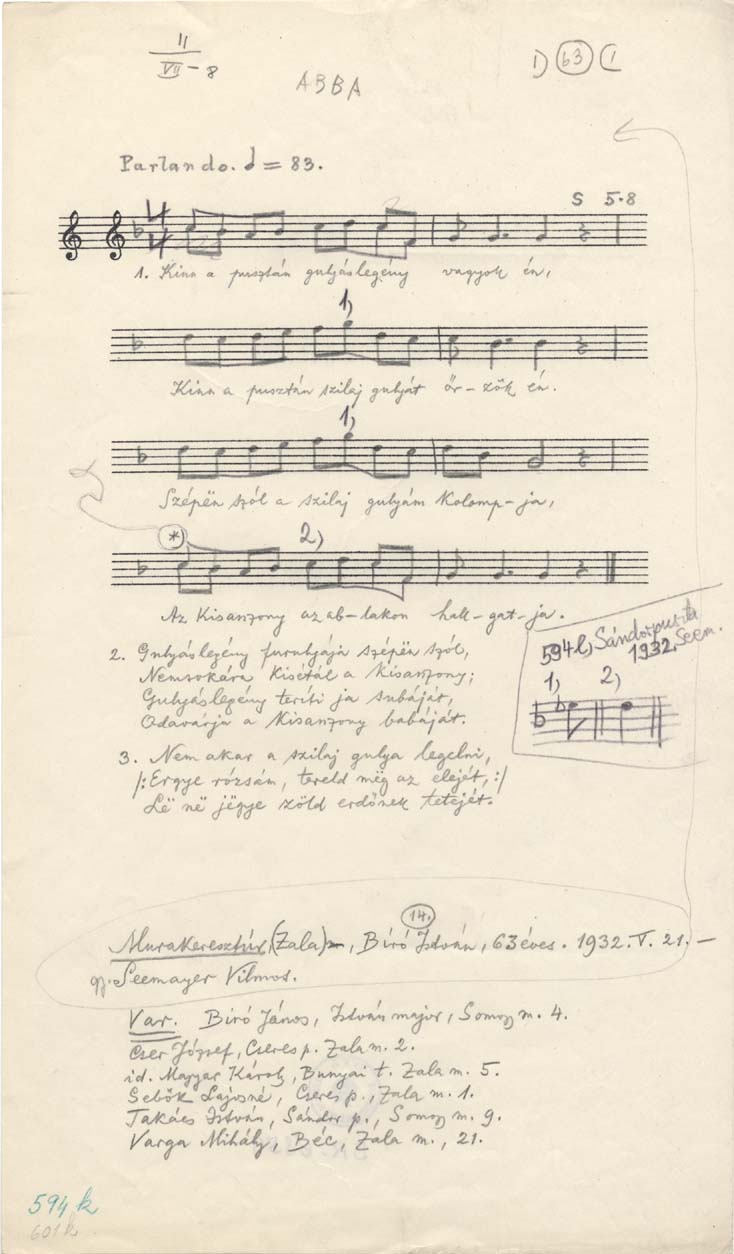 II
VII - 8
ABBA
1) 63 (1
Parlando. ♩ = 83.
S 5·8
1. Kinn a pusztán gulyáslegény vagyok én,
1)
Kinn a pusztán szilaj gulyát őr-zők én.
1)
Szépën szól a szilaj gulyám Kolomp-ja,
*
2)
Az Kisanzony az ab-lakon hall-gat-ja.
594 l, Sándorpuszta
1932. Seem.
1) 2)
2. Gulyáslegény furulyája szépën szól,
Nemsokára kisétál a Kisanzony;
Gulyáslegény teríti ja subáját,
Odavárja a Kisanzony babáját.
3. Nem akar a szilaj gulya legelni,
/:Ergye rózsám, tereld mëg az elejét,:/
Lë në jëgye zöld erdőnek tetejét.
14.
Murakeresztúr, (Zala), Bíró István, 63 éves. 1932. V. 21. –
gy. Seemayer Vilmos.
Var. Bíró János, István major, Somogy m. 4.
Cser József, Cseres p. Zala m. 2.
id. Magyar Károly, Bunyai t. Zala m. 5.
Sebők Lajosné, Cseres p., Zala m. 1.
Takács István, Sándor p., Somogy m. 9.
Varga Mihály, Béc, Zala m., 21.
594 k
601 k